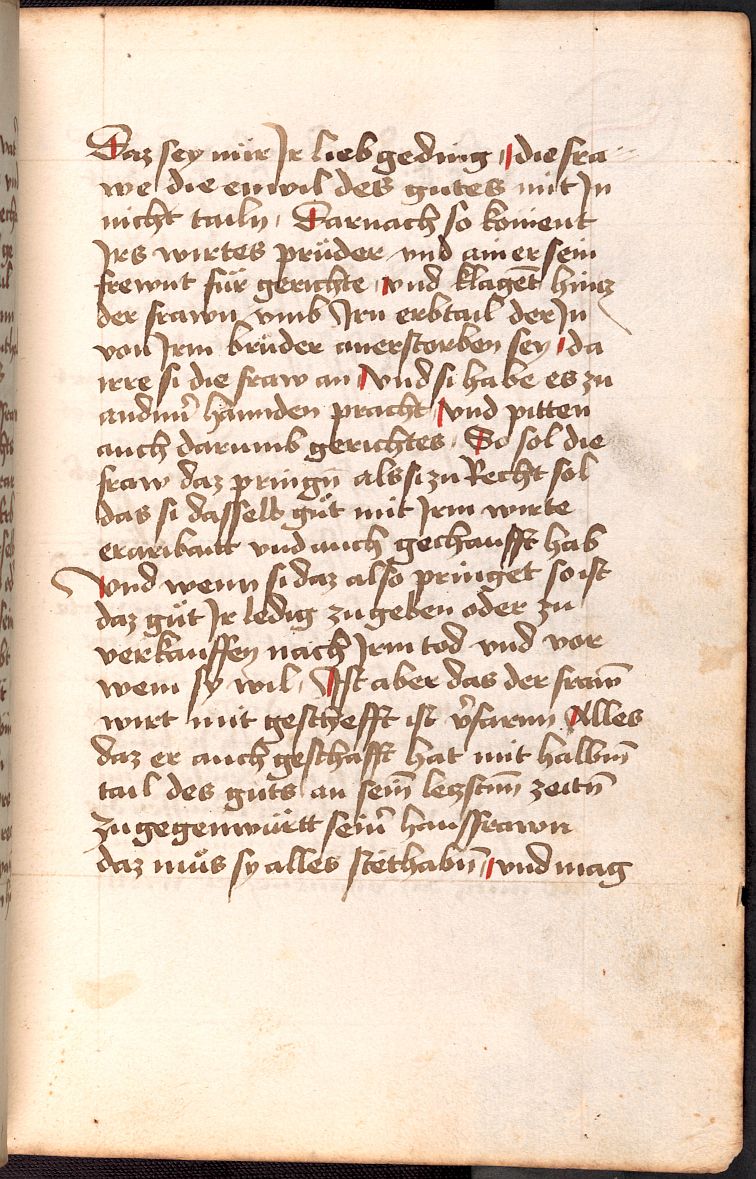 Daz sey mir Jr liebgeding / die fra
we die enwil des gutes mit Jn
nicht tailn / Darnach so koment
Jrs wirtes prüder vnd ainer sein
frewnt für gerichte / vnd klagent hincz
der frawn vmb Jrn erbtail der Jn
von Jrm brüder anerstorben sey / da
irre si die fraw an / vnd si habe es zu
andern hannden pracht / vnd pitten
auch darumb gerichtes / So sol die
fraw daz pringn̄ als si zu Recht sol
das si dasselb güt mit Jrm wirte
eraribaitt vnd auch gechaufft hab
Vnd wenn si daz also pringet so ist
daz güt Jr ledig zugeben oder zu
verkauffen nach Jrm tod vnd vor
wem sy wil / Ist aber das der frawn̄
wirt mit geschefft ist v̄farnn Alles
daz er auch geschafft hat mit halbm̄
tail des guts an sein̄ leczstnn̄ zeitn̄
zugegenwürtt sein̄ hausfrawn
daz müs sy alles stethabn̄ / vnd mag